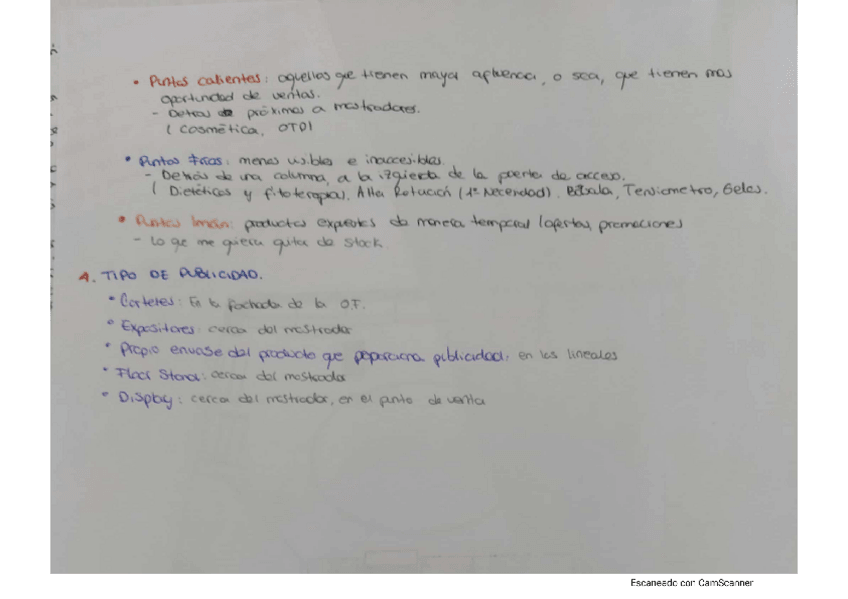 • Puntos calientes: aquellos qe tienen mayor afluencia, o sea, que tienen mas
oportunidad de ventas.
- Detras de próximos a mostradores.
( Cosmética, OTD)
• Puntos Frios: menos visibles e inaccesibles.
- Detrás de una columna, a la izquierda de la puerta de acceso.
( Dietéticos y fitoterapias, Alta Rotación (1ª Necesidad). Báscula, Tensiometro, Geles.
• Puntos Imán: productos expuestos de manera temporal (ofertas, promociones
- Lo qe me quiera quitar de stock.
4. TIPO DE PUBLICIDAD.
• Carteles: En la fachada de la O.F.
• Expositores: cerca del mostrador
• Propio envase del producto que poporciona publicidad: en los lineales
• Floor Stand: cerca del mostrador
• Display: cerca del mostrador, en el punto de venta
Escaneado con CamScanner